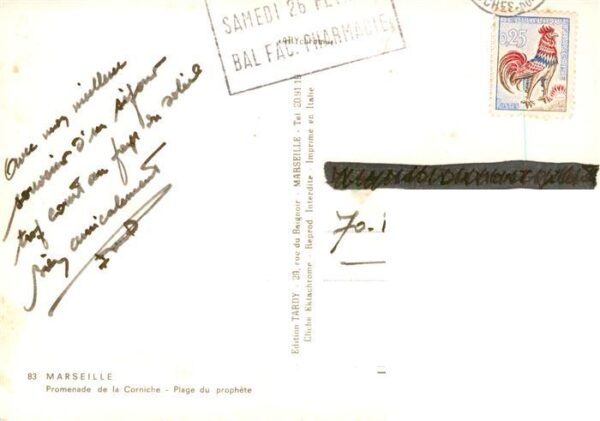 SAMEDI 26
BAL FAC. PHARMACIE
0,25
avec mon meilleur
souvenir d'un séjour
trop court au pays du soleil
bien amicalement
70.
Edition TARDY - 29, rue du Baignoir - MARSEILLE - Tel 20 91 19
Cliche Ektachrome - Reprod. Interdite - Imprime en Italie
83 MARSEILLE
Promenade de la Corniche - Plage du prophète